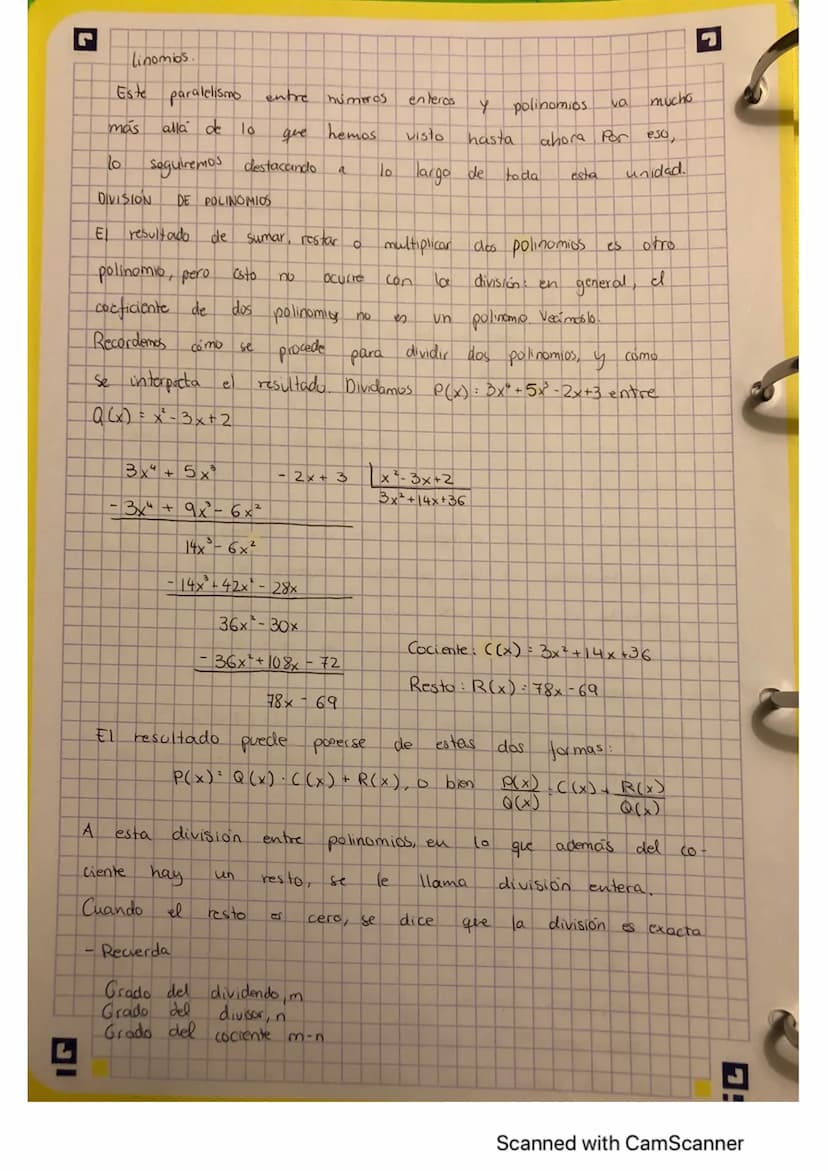 linomios.
Este paralelismo entre números enteros y polinomios va mucho
más allá de lo que hemos visto hasta ahora Por eso,
lo seguiremos destacando a lo largo de toda esta unidad.
DIVISIÓN DE POLINOMIOS
El resultado de sumar, restar o multiplicar dos polinomios es otro
polinomio, pero esto no ocurre con la división: en general, el
coeficiente de dos polinomios no es un polinomio. Veámoslo.
Recordemos cómo se procede para dividir dos polinomios, y cómo
se interpreta el resultado. Dividamos P(x) = 3x⁴ + 5x³ - 2x + 3 entre
Q(x) = x² - 3x + 2
3x⁴ + 5x³ - 2x + 3 | x² - 3x + 2
- 3x⁴ + 9x³ - 6x² 3x² + 14x + 36
14x³ - 6x²
- 14x³ + 42x² - 28x
36x² - 30x
- 36x² + 108x - 72
78x - 69
Cociente: C(x) = 3x² + 14x + 36
Resto: R(x) = 78x - 69
El resultado puede ponerse de estas dos formas:
P(x) = Q(x) · C(x) + R(x), o bien P(x)/Q(x) = C(x) + R(x)/Q(x)
A esta división entre polinomios, en lo que además del co-
ciente hay un resto, se le llama división entera.
Cuando el resto es cero, se dice que la división es exacta
- Recuerda
Grado del dividendo, m
Grado del divisor, n
Grado del cociente m-n
Scanned with CamScanner